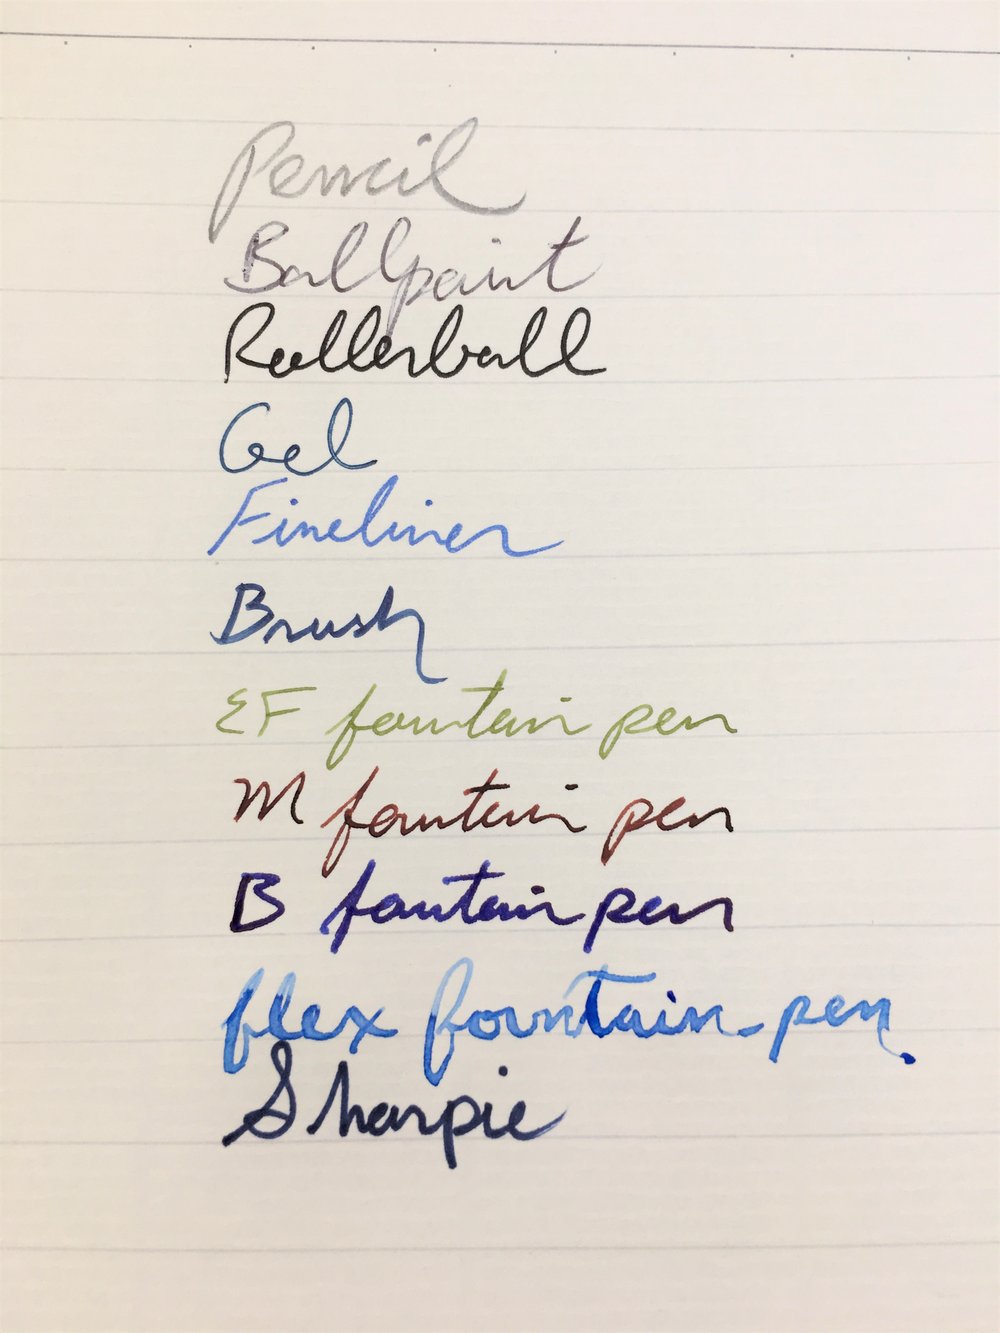 Pencil
Ballpoint
Rollerball
Gel
Fineliner
Brush
EF fountain pen
M fountain pen
B fountain pen
flex fountain pen
Sharpie